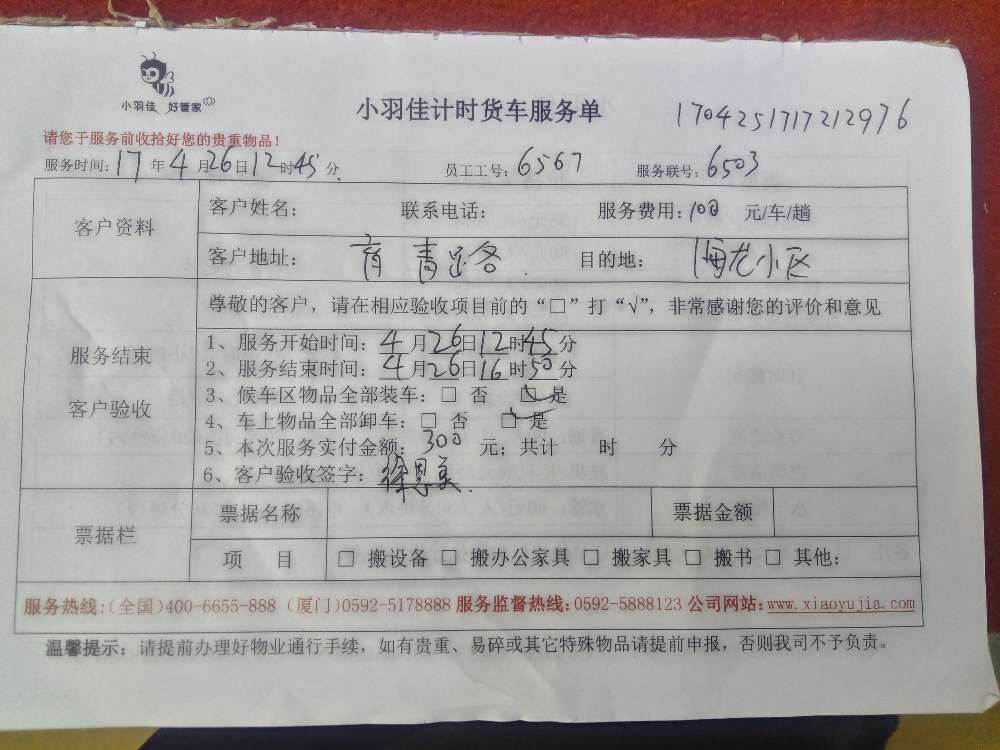 小羽佳 好管家
小羽佳计时货车服务单
1704251717212976
请您于服务前收拾好您的贵重物品！
服务时间：17年4月26日12时45分 员工工号：6567 服务联号：6503
客户资料
客户姓名： 联系电话： 服务费用：100 元/车/趟
客户地址： 目的地：海龙小区
服务结束
客户验收
尊敬的客户，请在相应验收项目前的“□”打“√”，非常感谢您的评价和意见
1、服务开始时间：4月26日12时45分
2、服务结束时间：4月26日16时50分
3、候车区物品全部装车：□ 否 ☑ 是
4、车上物品全部卸车：□ 否 ☑ 是
5、本次服务实付金额：300 元；共计 时 分
6、客户验收签字：徐恩美
票据栏
票据名称 票据金额
项 目 □ 搬设备 □ 搬办公家具 □ 搬家具 □ 搬书 □ 其他：
服务热线:(全国)400-6655-888 (厦门)0592-5178888 服务监督热线:0592-5888123 公司网站:www.xiaoyujia.com
温馨提示：请提前办理好物业通行手续，如有贵重、易碎或其它特殊物品请提前申报，否则我司不予负责。